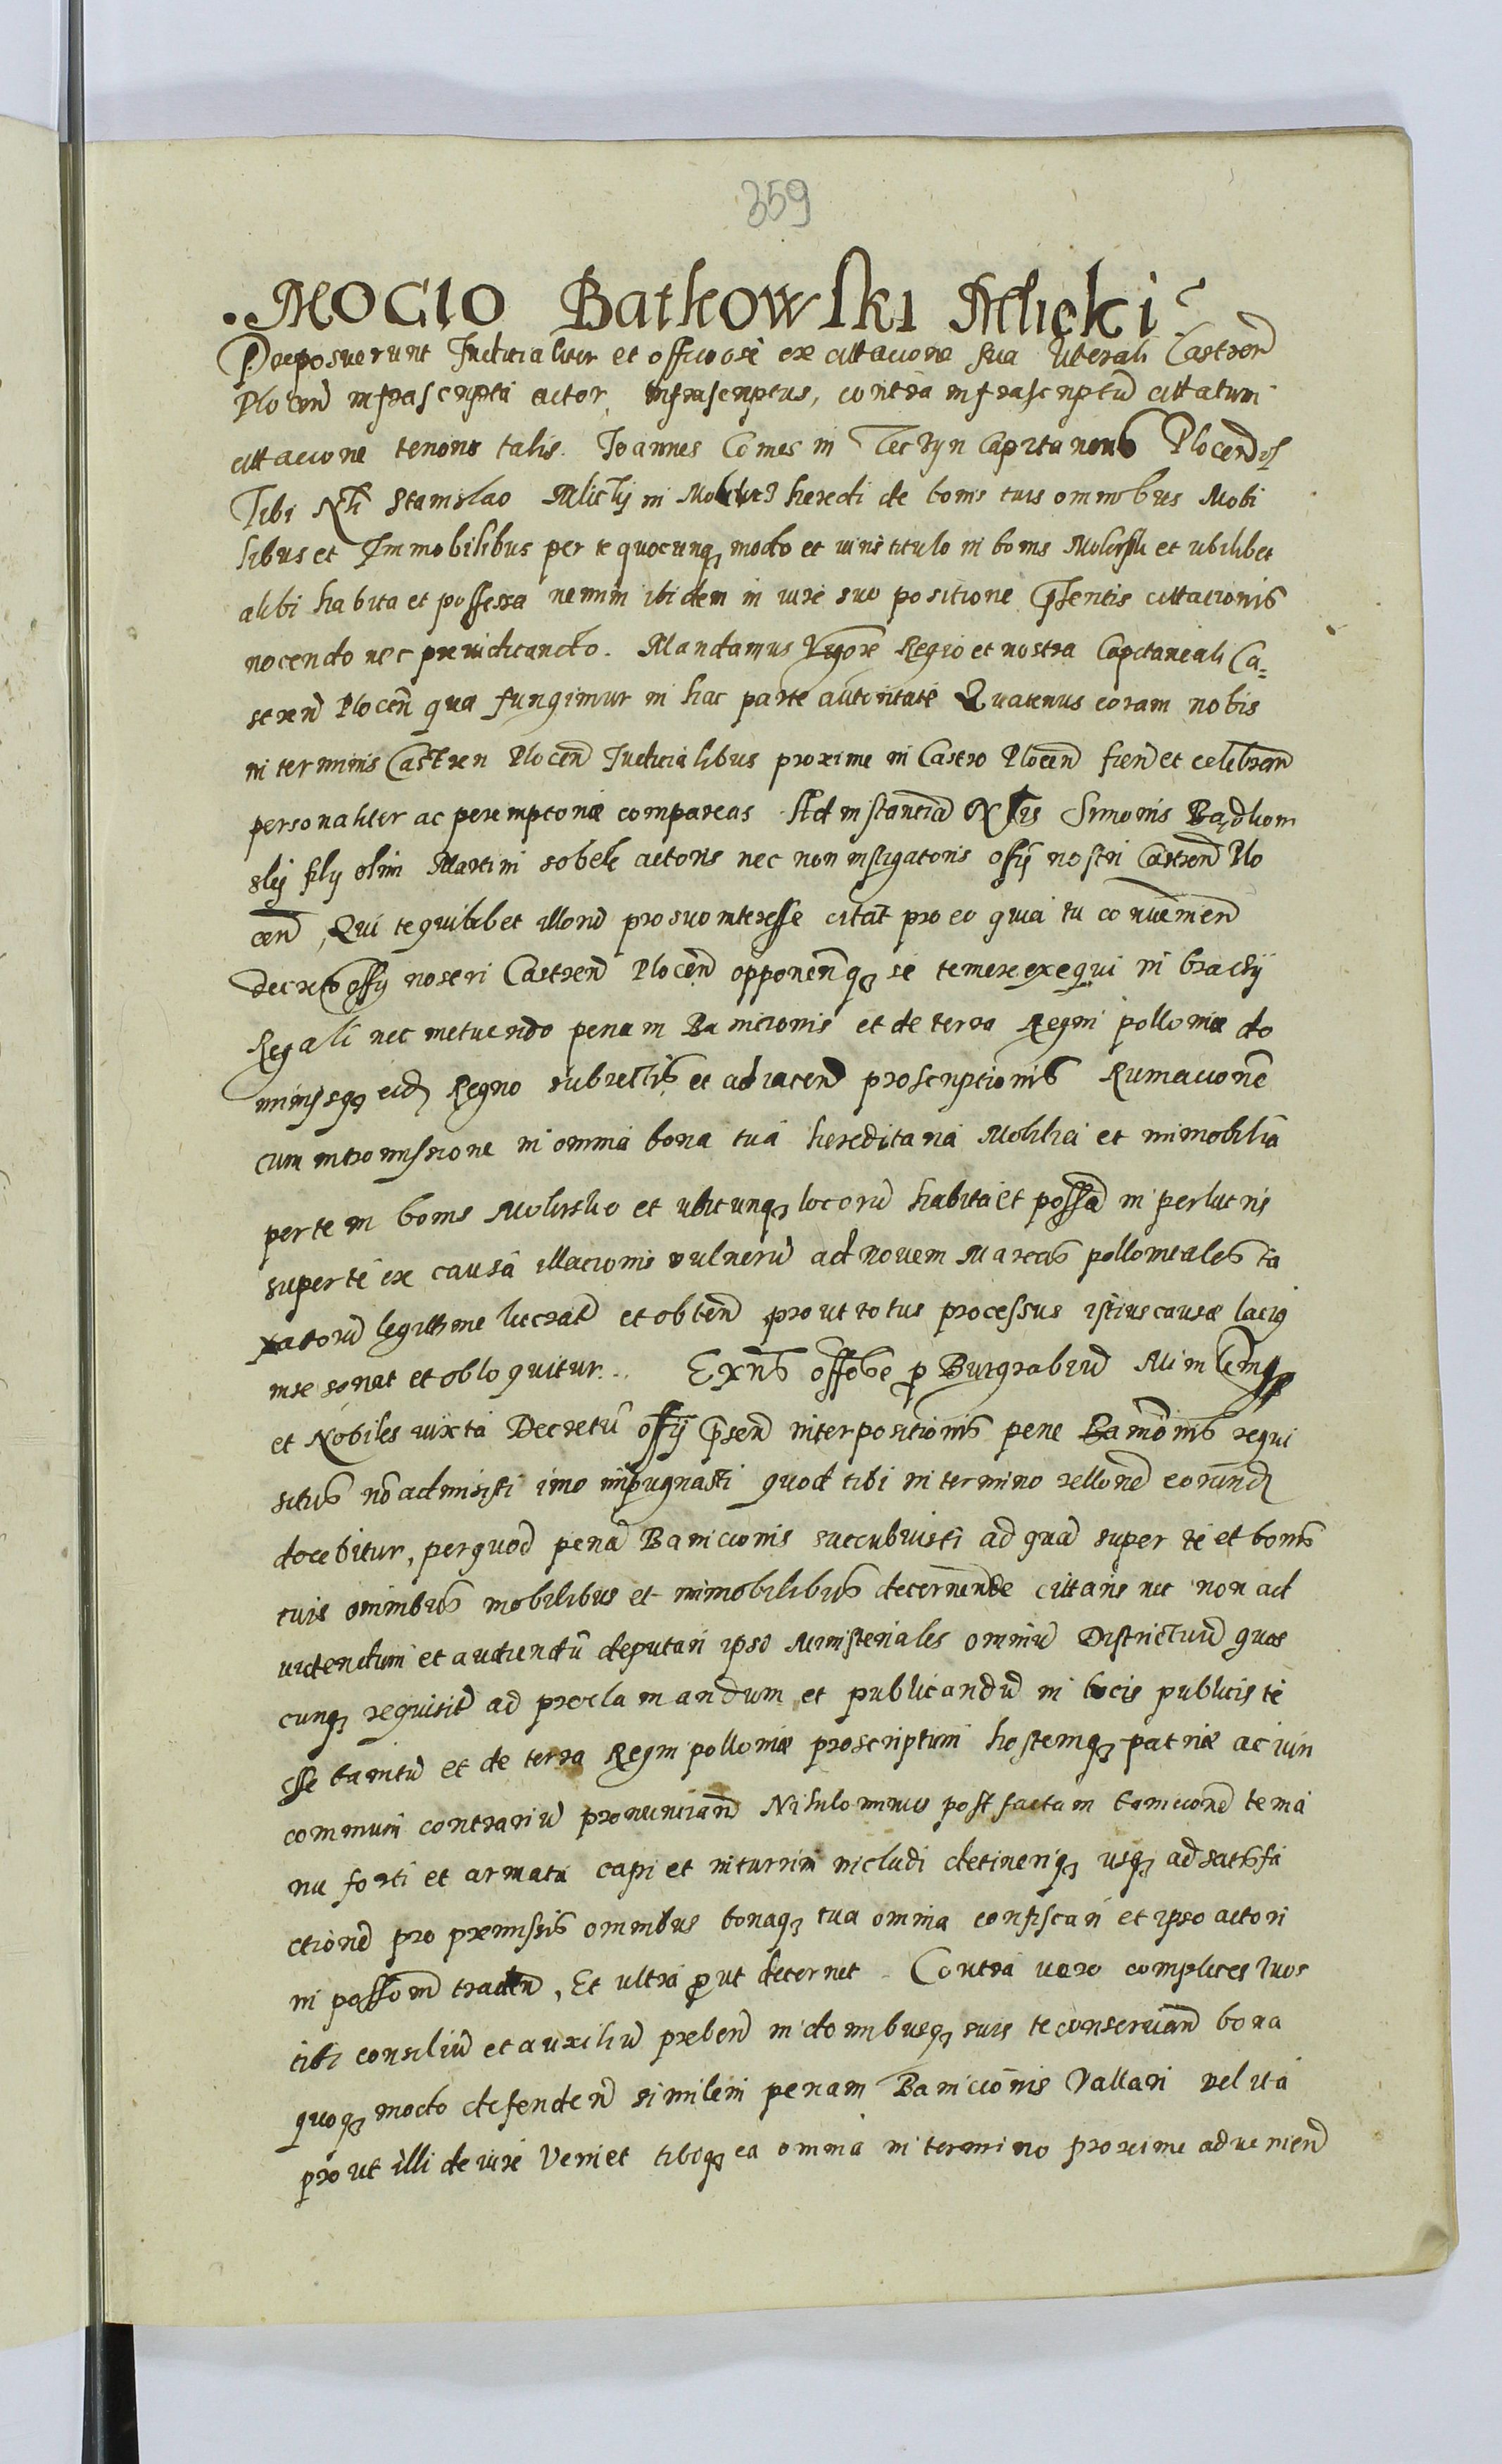 359
. MOCIO Batkowski Mlicki
Proposuerunt Judicialiter et officiose ex cittacione sua literali Castren̄
Plocen̄ infrascripta actor infrascriptus, contra infrascriptū cittatum
cittacione tenoris talis. Joannes Comes in Teczyn Capitaneus Plocen̄
Tibi Nli Stanislao Mliczkÿ in heredi de bonis tuis omnibus Mobi
libus et Immobilibus per te quocunqꝫ modo et iuris titulo in bonis et ubilibet
alibi habita et possessa nemini ibidem in iure suo positione p̄sentis cittacionis
nocendo nec preiudicando. Mandamus Vigore Regio et nostra Capitaneali Ca=
stren̄ Plocen̄ qua fungimur in hac parte autoritate Quatenus coram nobis
in terminis Castren Plocen̄ Judicialibus proxime in Castro Plocen̄ fien̄ et celebran̄
personaliter ac peremptorie compareas Ad instantiā Nlis Simonis
filÿ olim Martini sobole actoris nec non instigatoris offÿ nostri Castren̄ Plo
cen̄, Qui te quilibet illorū pro suo interesse citat pro eo quia tu convenien̄
decreto offÿ nostri Castren̄ Plocen̄ opponen̄qꝫ se temere exequi in brachÿ
Regali nec metuendo penam Banicionis et de terra Regni polloniæ do
minÿsqꝫ eidꝫ Regno subiectis et adiacen̄ proscriptionis Rumacionē
cum intromissione in omnia bona tua hereditaria Mobilia et immobilia
per te in bonis et ubicunqꝫ locorū habita et possessa in perlucris
super te ex causa illacionis vulnerū ad novem Marcas pollonicales ta
xatorū legittime lucrat̄ et obten̄ prout totus processus istius causæ lacius
in se sonat et obloquitur. Exn̄s p Burgrabiū
et Nobiles iuxta Decretū offÿ p̄sen̄ interpositionis pene Banicionis requi
situs nō admisisti imo impugnasti quod tibi in termino rellone eorundꝫ
docebitur, per quod penā Banicionis succubuisti ad quā super te et bonis
tuis omnibus mobilibus et immobilibus decernende cittaris nec non ad
videndum et audiendū deputari ipso Ministeriales omniū Districtuū quos
cunqꝫ requisit̄ ad proclamandum et publicandū in locis publicis te
esse banitū et de terra Regni polloniæ proscriptum hostemqꝫ patriæ ac iuri
communi contrariū pronuncian̄ Nihilominus post factam banicionē te ma
nu forti et armata capi et in turrim includi detineriqꝫ usqꝫ ad satisfa
ctionē pro premissis omnibus bonaqꝫ tua omnia confiscari et ipso actori
in possionē traden̄, Et ultra put decernet. Contra vero complices tuos
tibi consiliū et auxiliū preben̄ in domibusqꝫ suis te conservan̄ bona
quoqꝫ modo defenden̄ similem penam Banicionis Vallari vel ita
prout illi de iure Veniet tibiqꝫ ea omnia in termino proxime advenien̄